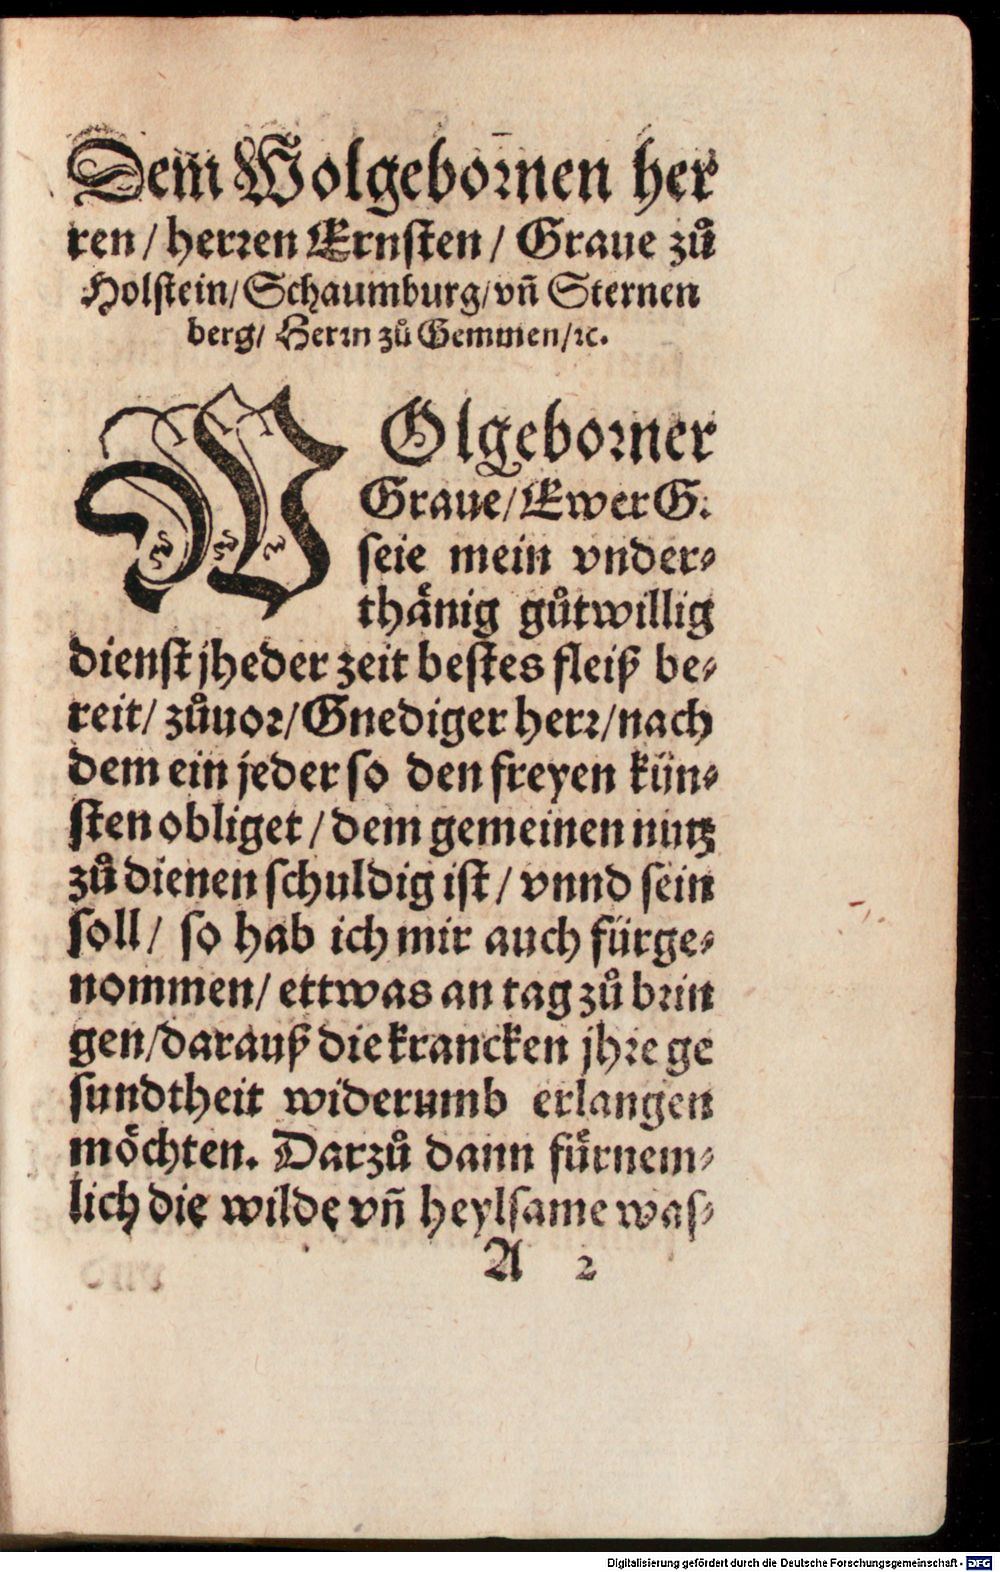 Dem Wolgebornen her
ren / herren Ernsten / Graue zů
Holstein / Schaumburg / vñ Sternen
berg / Herrn zů Gemmen / ꝛc.
WOlgeborner
Graue / Ewer G.
seie mein vnder-
thänig gůtwillig
dienst jheder zeit bestes fleiß be-
reit / zůuor / Gnediger herr / nach
dem ein jeder so den freyen kün-
sten obliget / dem gemeinen nutz
zů dienen schuldig ist / vnnd sein
soll / so hab ich mir auch fürge-
nommen / ettwas an tag zů brin
gen / darauß die krancken jhre ge
sundtheit widerumb erlangen
möchten. Darzů dann fürnem-
lich die wilde vñ heylsame was-
A 2
Digitalisierung gefördert durch die Deutsche Forschungsgemeinschaft - DFG